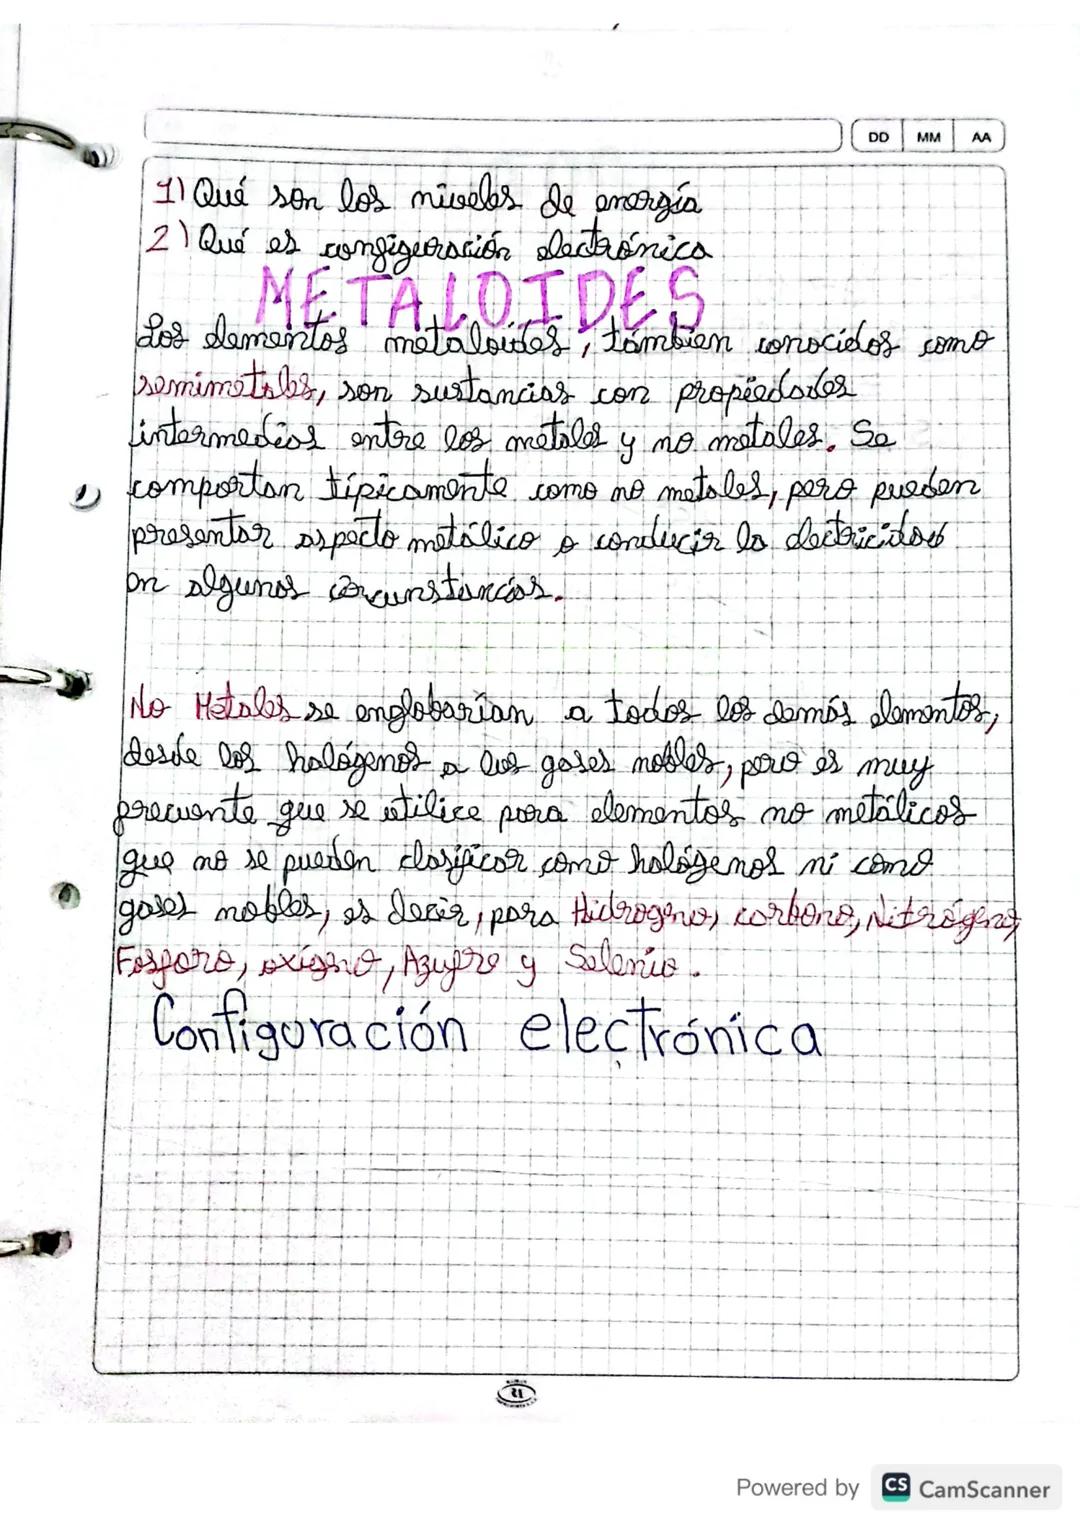 DD MM AA
1) Qué son los niveles de energía
2) Qué es configuración electrónica
METALOIDES
Los elementos metaloides, támbien conocidos como
semimetales, son sustancias con propiedades
intermedias entre los metales y no metales. Se
comportan típicamente como no metales, pero pueden
presentar aspecto metálico o conducir la electricidad
en algunas circunstancias.
No Metales se englobarían a todos los demás elementos,
desde los halógenos a los gases nobles, pero es muy
frecuente que se utilice para elementos no metálicos
que no se pueden clasificar como halógenos ni como
gases nobles, es decir, para Hidrogeno, carbono, Nitrógeno,
Fosforo, oxígeno, Azufre y Selenio.
Configuración electrónica
Powered by CS CamScanner